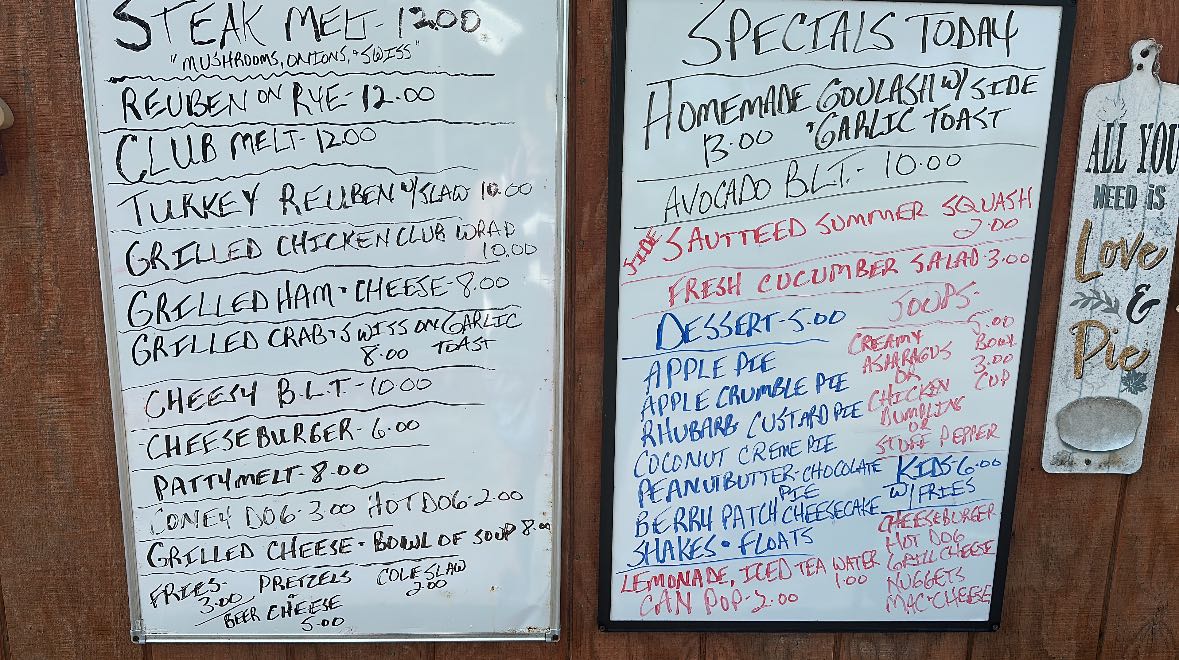 STEAK MELT - 12.00
"MUSHROOMS, ONIONS, & SWISS"
REUBEN ON RYE - 12.00
CLUB MELT - 12.00
TURKEY REUBEN W/SLAW 10.00
GRILLED CHICKEN CLUB WRAP
10.00
GRILLED HAM & CHEESE - 8.00
GRILLED CRAB & SWISS ON GARLIC
8.00 TOAST
CHEESY B.L.T - 10.00
CHEESEBURGER - 6.00
PATTY MELT - 8.00
CONEY DOG - 3.00 HOT DOG - 2.00
GRILLED CHEESE & BOWL OF SOUP 8.00
FRIES -
3.00
PRETZELS
BEER CHEESE
5.00
COLESLAW
2.00
SPECIALS TODAY
HOMEMADE GOULASH W/ SIDE
13.00 & GARLIC TOAST
AVOCADO B.L.T. - 10.00
SIDE SAUTTEED SUMMER SQUASH
FRESH CUCUMBER SALAD - 3.00
DESSERT - 5.00
APPLE PIE
APPLE CRUMBLE PIE
RHUBARB CUSTARD PIE
COCONUT CREME PIE
PEANUTBUTTER - CHOCOLATE
PIE
BERRY PATCH CHEESECAKE
SHAKES & FLOATS
LEMONADE, ICED TEA WATER
1.00
CAN POP - 2.00
SOUPS -
CREAMY
ASPARAGUS
OR
CHICKEN
DUMPLING
OR
STUFF PEPPER
5.00
BOWL
3.00
CUP
KIDS 6.00
W/ FRIES
CHEESEBURGER
HOT DOG
GRILL CHEESE
NUGGETS
MAC & CHEESE
ALL YOU
NEED IS
Love
&
Pie